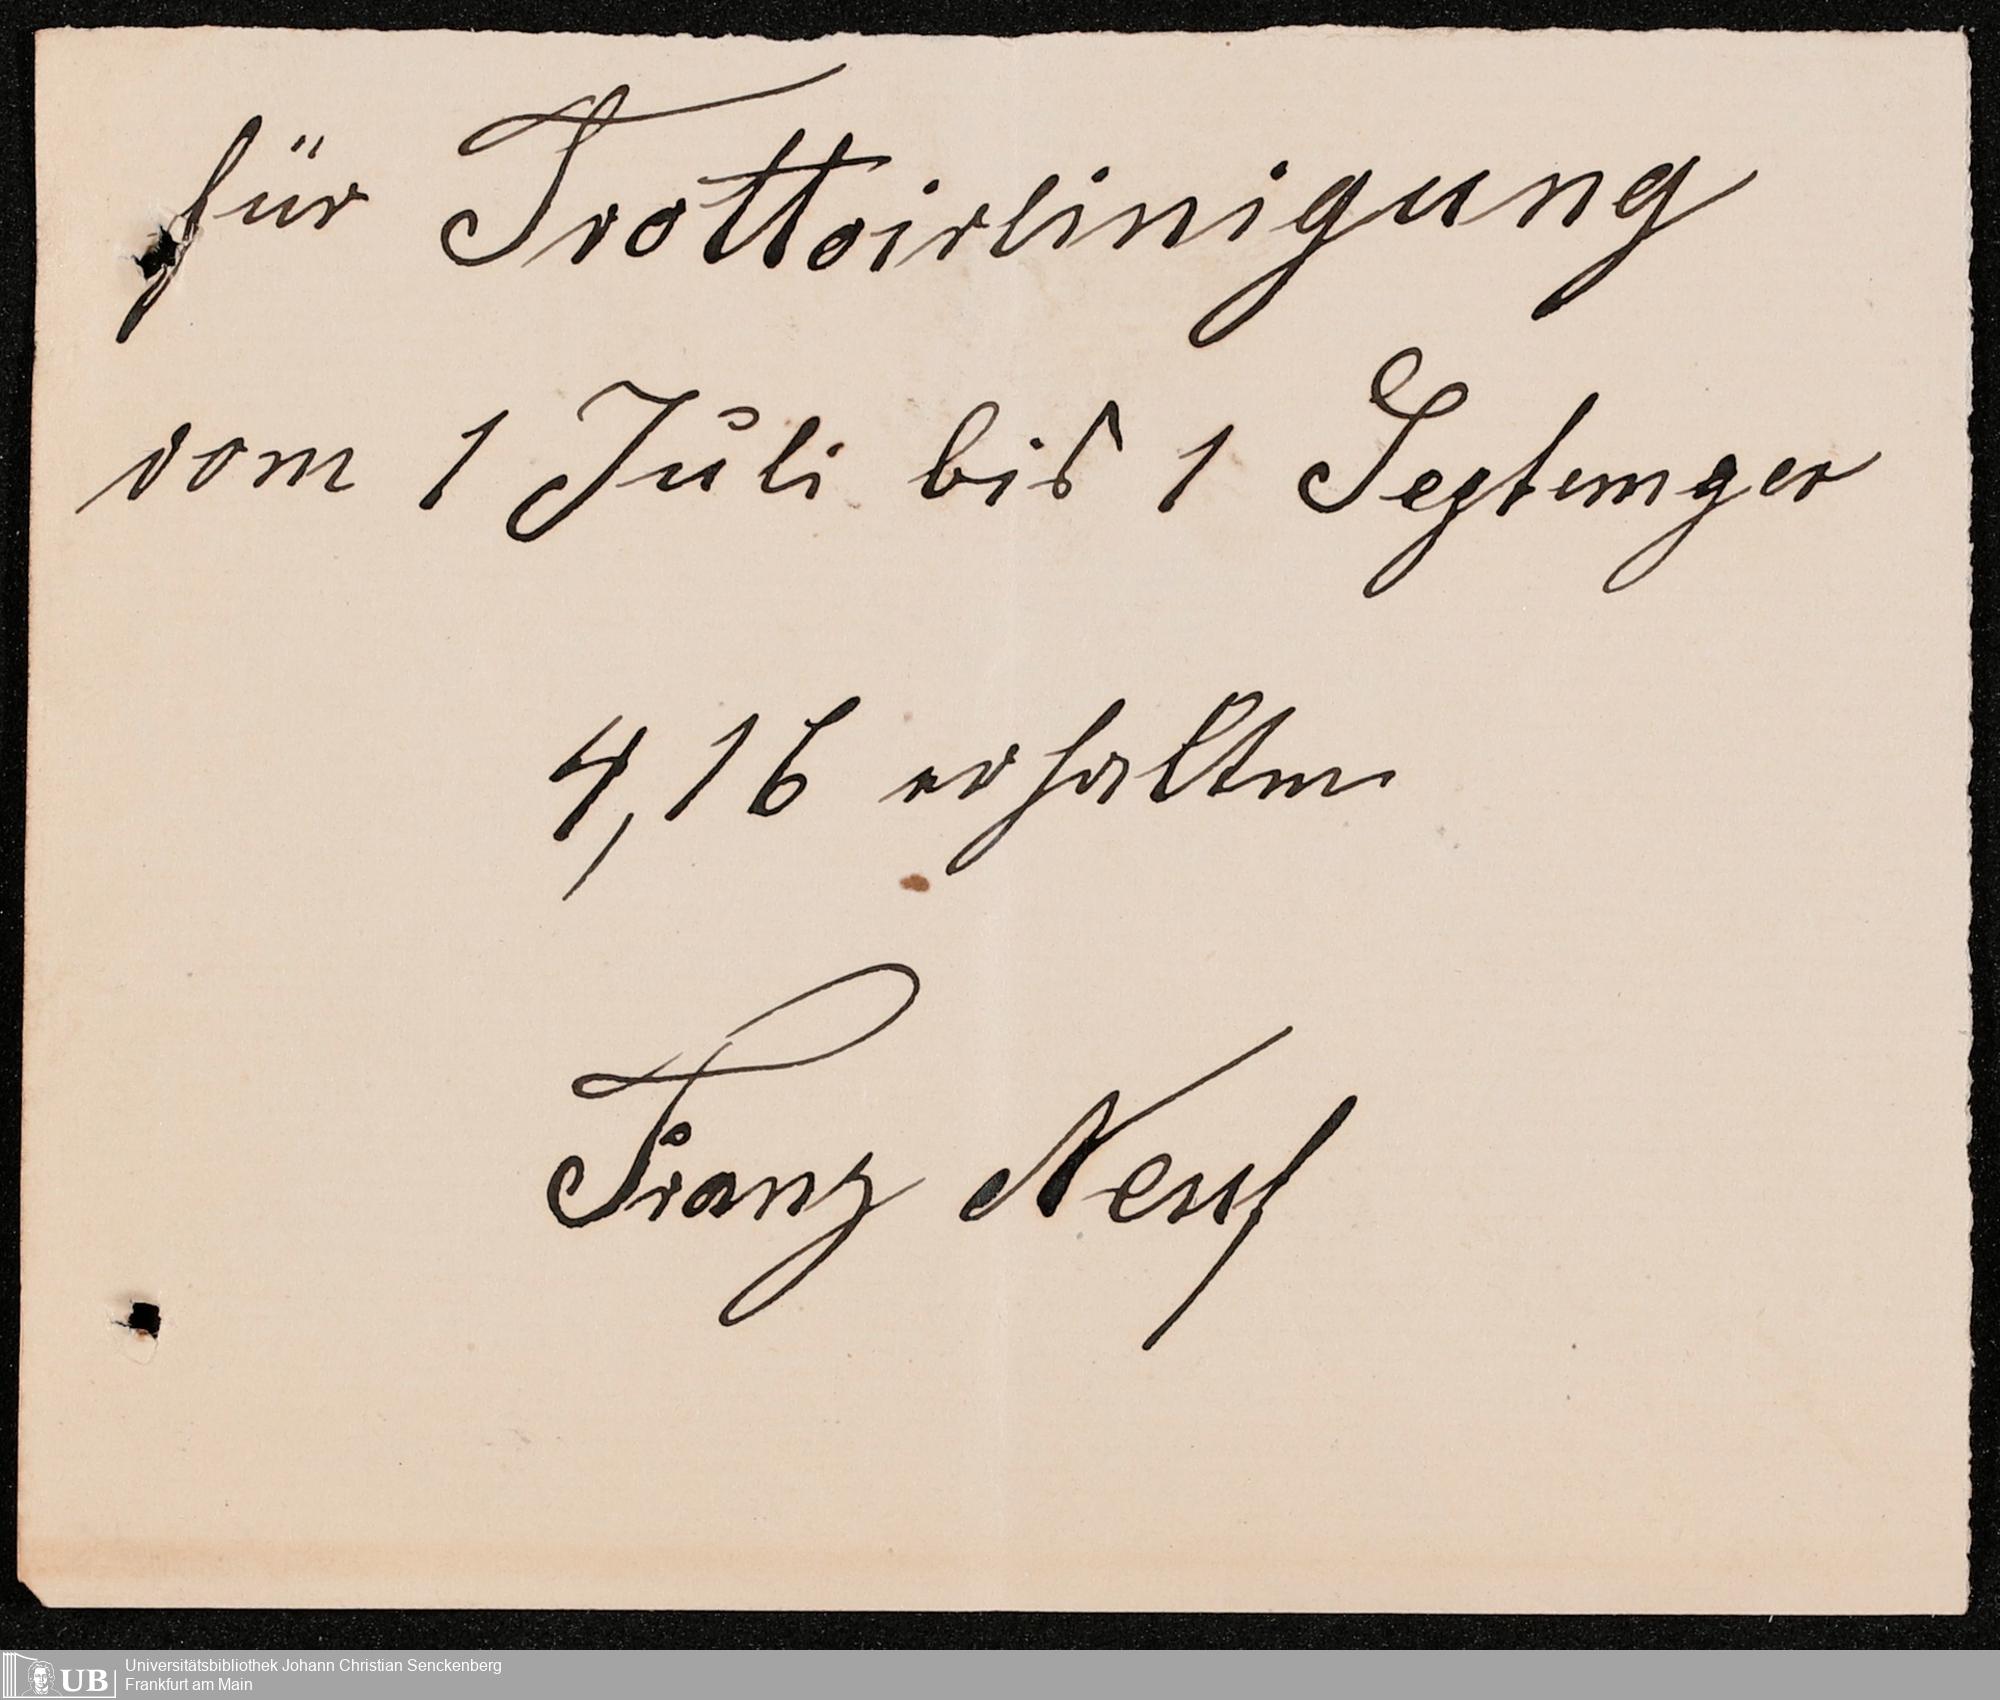 für Trottoirlinigung
vom 1 Juli bis 1 Septemger
4,16 erhalten
Franz Neuf
UB Universitätsbibliothek Johann Christian Senckenberg
Frankfurt am Main